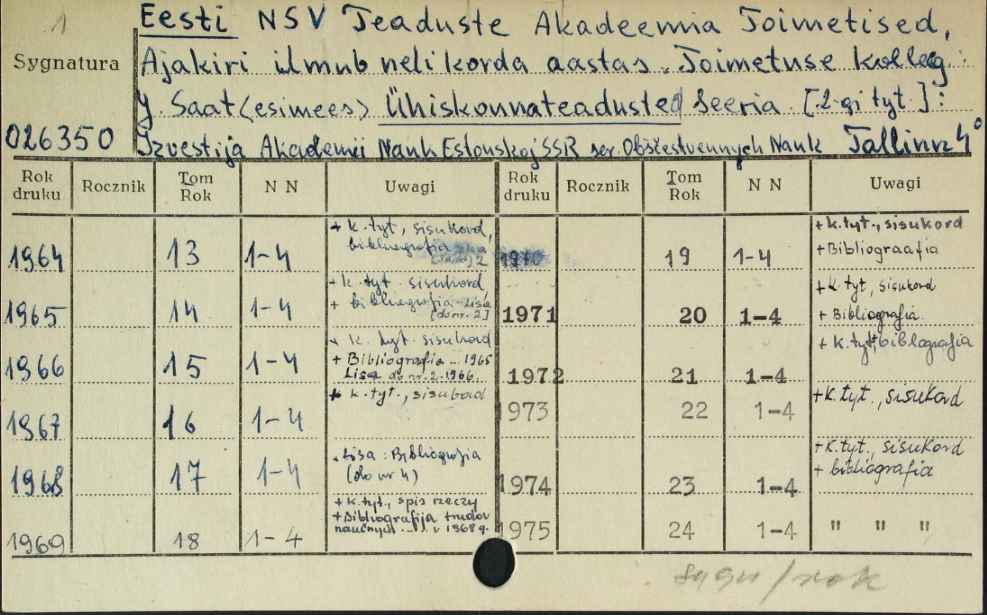 1
Eesti NSV Teaduste Akadeemia Toimetised,
Sygnatura
Ajakiri ilmub neli korda aastas. Toimetuse kolleg.:
J. Saat (esimees) Ühiskonnateaduste Seeria. [2-gi tyt.]:
026350
Izvestija Akademii Nauk Estonskoj SSR ser. Obščestvennych Nauk Tallinn 4°
Rok druku Rocznik Tom Rok N N Uwagi Rok druku Rocznik Tom Rok N N Uwagi
1964 13 1-4 + k. tyt, sisukord, bibliografia 2 1970 19 1-4 + k. tyt., sisukord + Bibliograafia
1965 14 1-4 + k. tyt. sisukord, + bibliografia - Lisa [do nr. 2] 1971 20 1-4 + k tyt, sisukord + Bibliografia.
1966 15 1-4 + k. tyt. sisukord + Bibliografia .. 1965 Lisa do nr. 2-1966. 1972 21 1-4 + k. tyt, bibliografia
1967 16 1-4 + k. tyt., sisukord 1973 22 1-4 + k. tyt., sisukord
1968 17 1-4 Lisa: Bibliografia (do nr 4) 1974 23 1-4 + k. tyt., sisukord + bibliografia
1969 18 1-4 + k. tyt., spis rzeczy + Bibliografija trudov naučnych ... v 1968 g. 1975 24 1-4 " " "
/rok